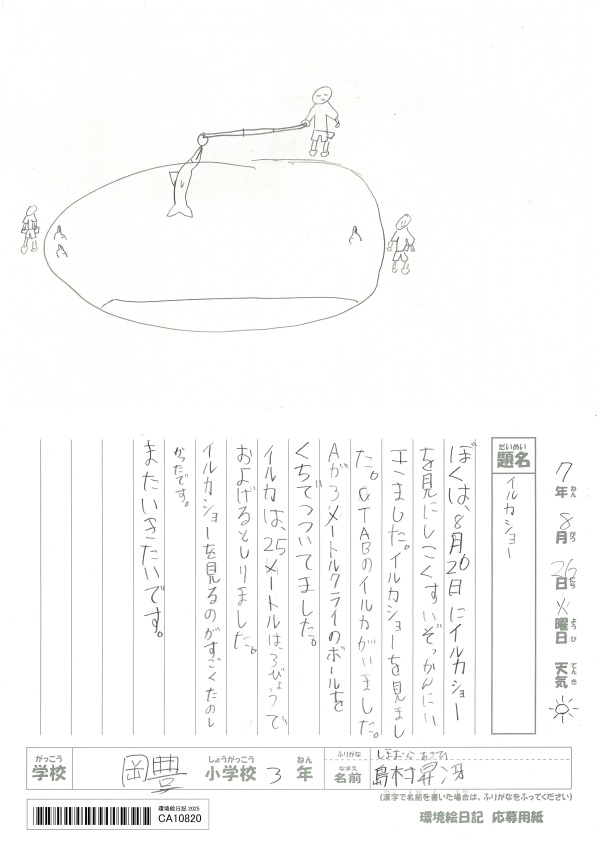 7年ねん8月がつ26日にち火曜日ようび 天気てんき
だいめい
題名
イルカショー
ぼくは、8月26日にイルカショー
を見にしこくすいぞっかんにい
きました。イルカショーを見まし
た。GTABのイルカがいました。
Aが3メートルクライのボールを
くちでつついてました。
イルカは、25メートルは、3びょうで
およげるとしりました。
イルカショーを見るのがすごくたのし
かったです。
またいきたいです。
がっこう
学校
岡豊
しょうがっこう
小学校
3
ねん
年
ふりがな
しまむら あさひ
なまえ
名前
島村昇冴
(漢字で名前を書いた場合は、ふりがなをふってください)
環境絵日記 2025
CA10820
環境絵日記 応募用紙